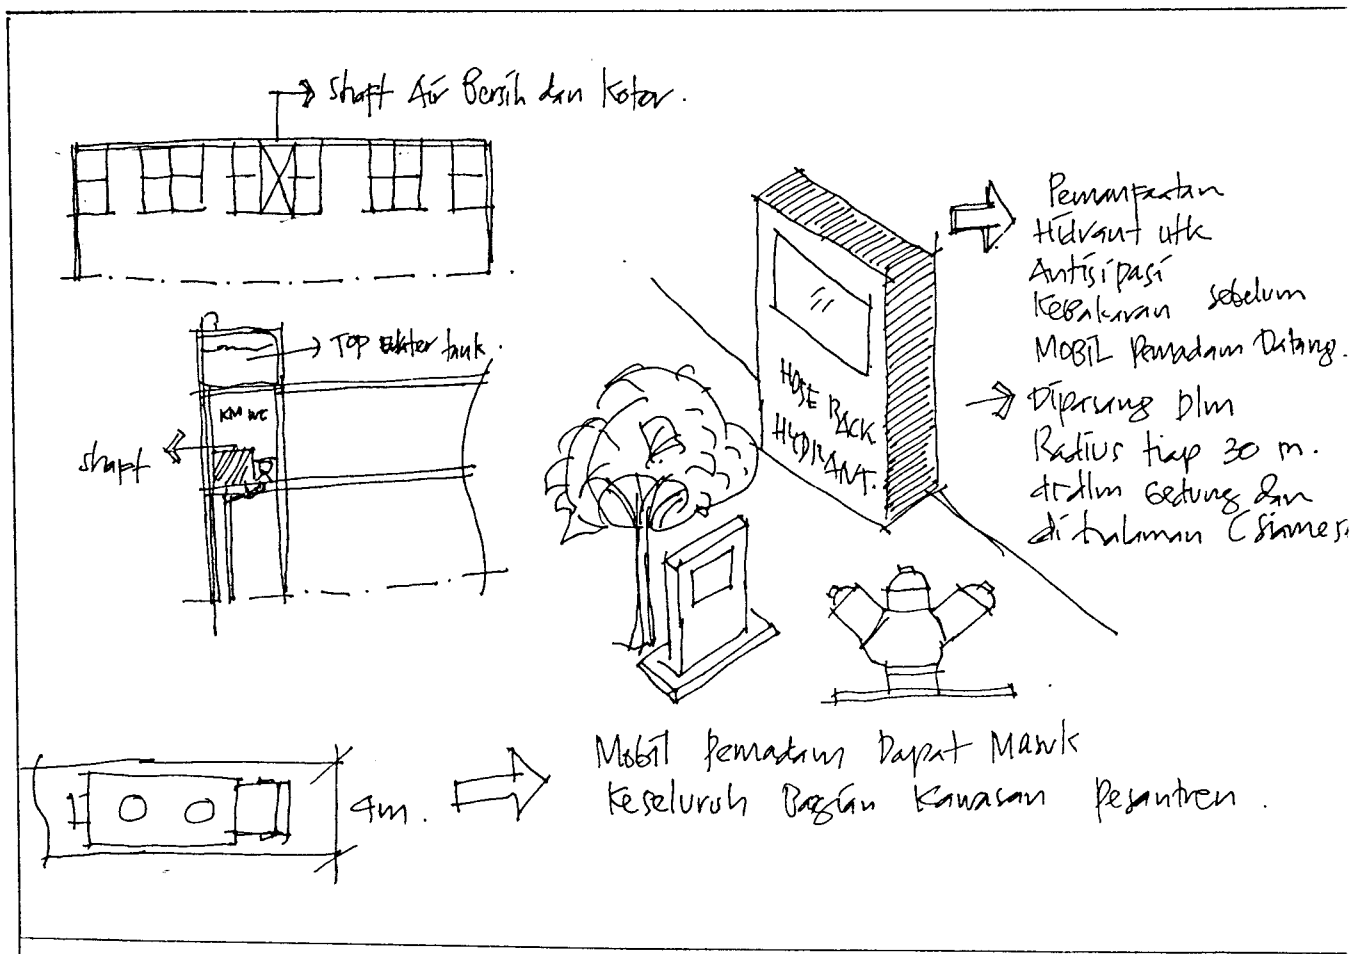 Shaft Air Bersih dan Kotor.
TOP Water tank.
KM WC
shaft
HOSE RACK
HYDRANT.
Pemanfaatan
Hidrant utk
Antisipasi
Kebakaran sebelum
MOBIL Pemadam Datang.
Dipasang Dlm
Radius tiap 30 m.
didlm Gedung dan
di halaman (Siames
4m.
Mobil Pemadam Dapat Masuk
Keseluruh Bagian Kawasan Pesantren.